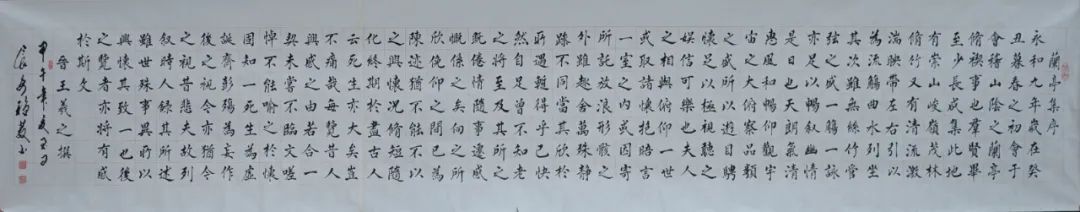 蘭亭集序
永和九年歲在癸
丑暮春之初會于
會稽山陰之蘭亭
脩禊事也群賢畢
至少長咸集此地
有崇山峻嶺茂林
脩竹又有清流激
湍映帶左右引以
為流觴曲水列坐
其次雖無絲竹管
弦之盛一觴一詠
亦足以暢敘幽情
是日也天朗氣清
惠風和暢仰觀宇
宙之大俯察品類
之盛所以遊目騁
懷足以極視聽之
娛信可樂也夫人
之相與俯仰一世
或取諸懷抱晤言
一室之内或因寄
所託放浪形骸之
外雖趣舍萬殊靜
躁不同當其欣於
所遇暫得於己快
然自足曾不知老
之將至及其所之
既倦情隨事遷感
慨係之矣向之所
欣俛仰之間已為
陳迹猶不能不以
之興懷況脩短隨
化終期於盡古人
云死生亦大矣豈
不痛哉每覽昔人
興感之由若合一
契未嘗不臨文嗟
悼不能喻之於懷
固知一死生為虛
誕齊彭殤為妄作
後之視今亦猶今
之視昔悲夫故列
敘時人錄其所述
雖世殊事異所以
興懷其致一也後
之覽者亦將有感
於斯文
晉王羲之撰
甲午年
書